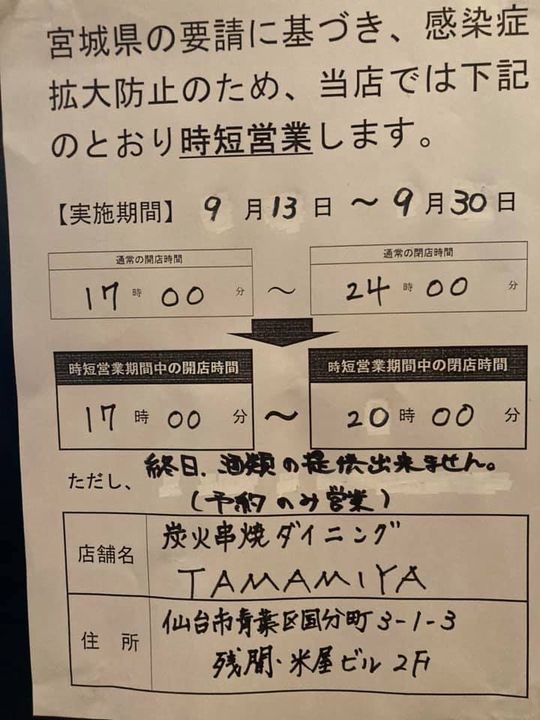 宮城県の要請に基づき、感染症
拡大防止のため、当店では下記
のとおり時短営業します。
【実施期間】 9月13日 〜 9月30日
通常の開店時間 通常の閉店時間
17時00分 〜 24時00分
時短営業期間中の開店時間 時短営業期間中の閉店時間
17時00分 〜 20時00分
ただし、終日、酒類の提供出来ません。
(予約のみ営業)
店舗名 炭火串焼ダイニング
TAMAMIYA
住所 仙台市青葉区国分町3-1-3
残間・米屋ビル2F